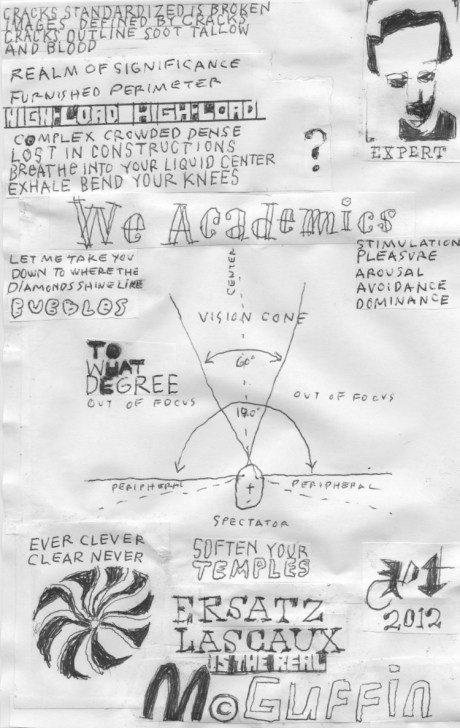 CRACKS STANDARDIZED IS BROKEN
IMAGES DEFINED BY CRACKS
CRACKS OUTLINE SOOT TALLOW
AND BLOOD
REALM OF SIGNIFICANCE
FURNISHED PERIMETER
HIGH-LOAD HIGH-LOAD
COMPLEX CROWDED DENSE
LOST IN CONSTRUCTIONS
BREATHE INTO YOUR LIQUID CENTER
EXHALE BEND YOUR KNEES
?
EXPERT
We Academics
LET ME TAKE YOU
DOWN TO WHERE THE
DIAMONDS SHINE LIKE
STIMULATION
PLEASURE
AROUSAL
AVOIDANCE
DOMINANCE
CENTER
VISION CONE
60°
TO
WHAT
DEGREE
OUT OF FOCUS
OUT OF FOCUS
180°
PERIPHERAL
PERIPHERAL
SPECTATOR
EVER CLEVER
CLEAR NEVER
SOFTEN YOUR
TEMPLES
2012
ERSATZ
LASCAUX
IS THE REAL
M©GUFFin